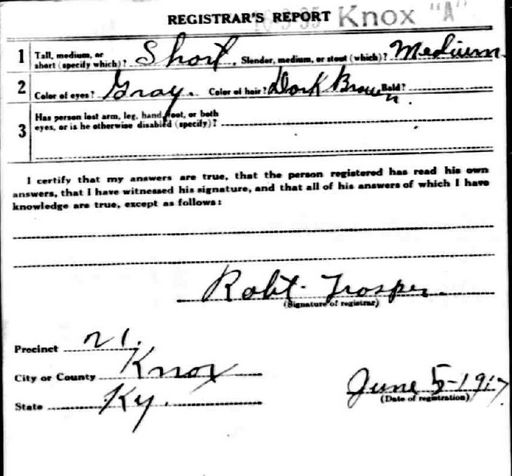 REGISTRAR'S REPORT Knox "A"
1 Tall, medium, or short (specify which)? Short, Slender, medium, or stout (which)? Medium.
2 Color of eyes? Gray. Color of hair? Dark Brown Bald?
3 Has person lost arm, leg, hand, foot, or both
eyes, or is he otherwise disabled (specify)?
I certify that my answers are true, that the person registered has read his own
answers, that I have witnessed his signature, and that all of his answers of which I have
knowledge are true, except as follows:
Robt. Trosper
(Signature of registrar)
Precinct 21.
City or County Knox
State Ky. June 5-1917
(Date of registration)